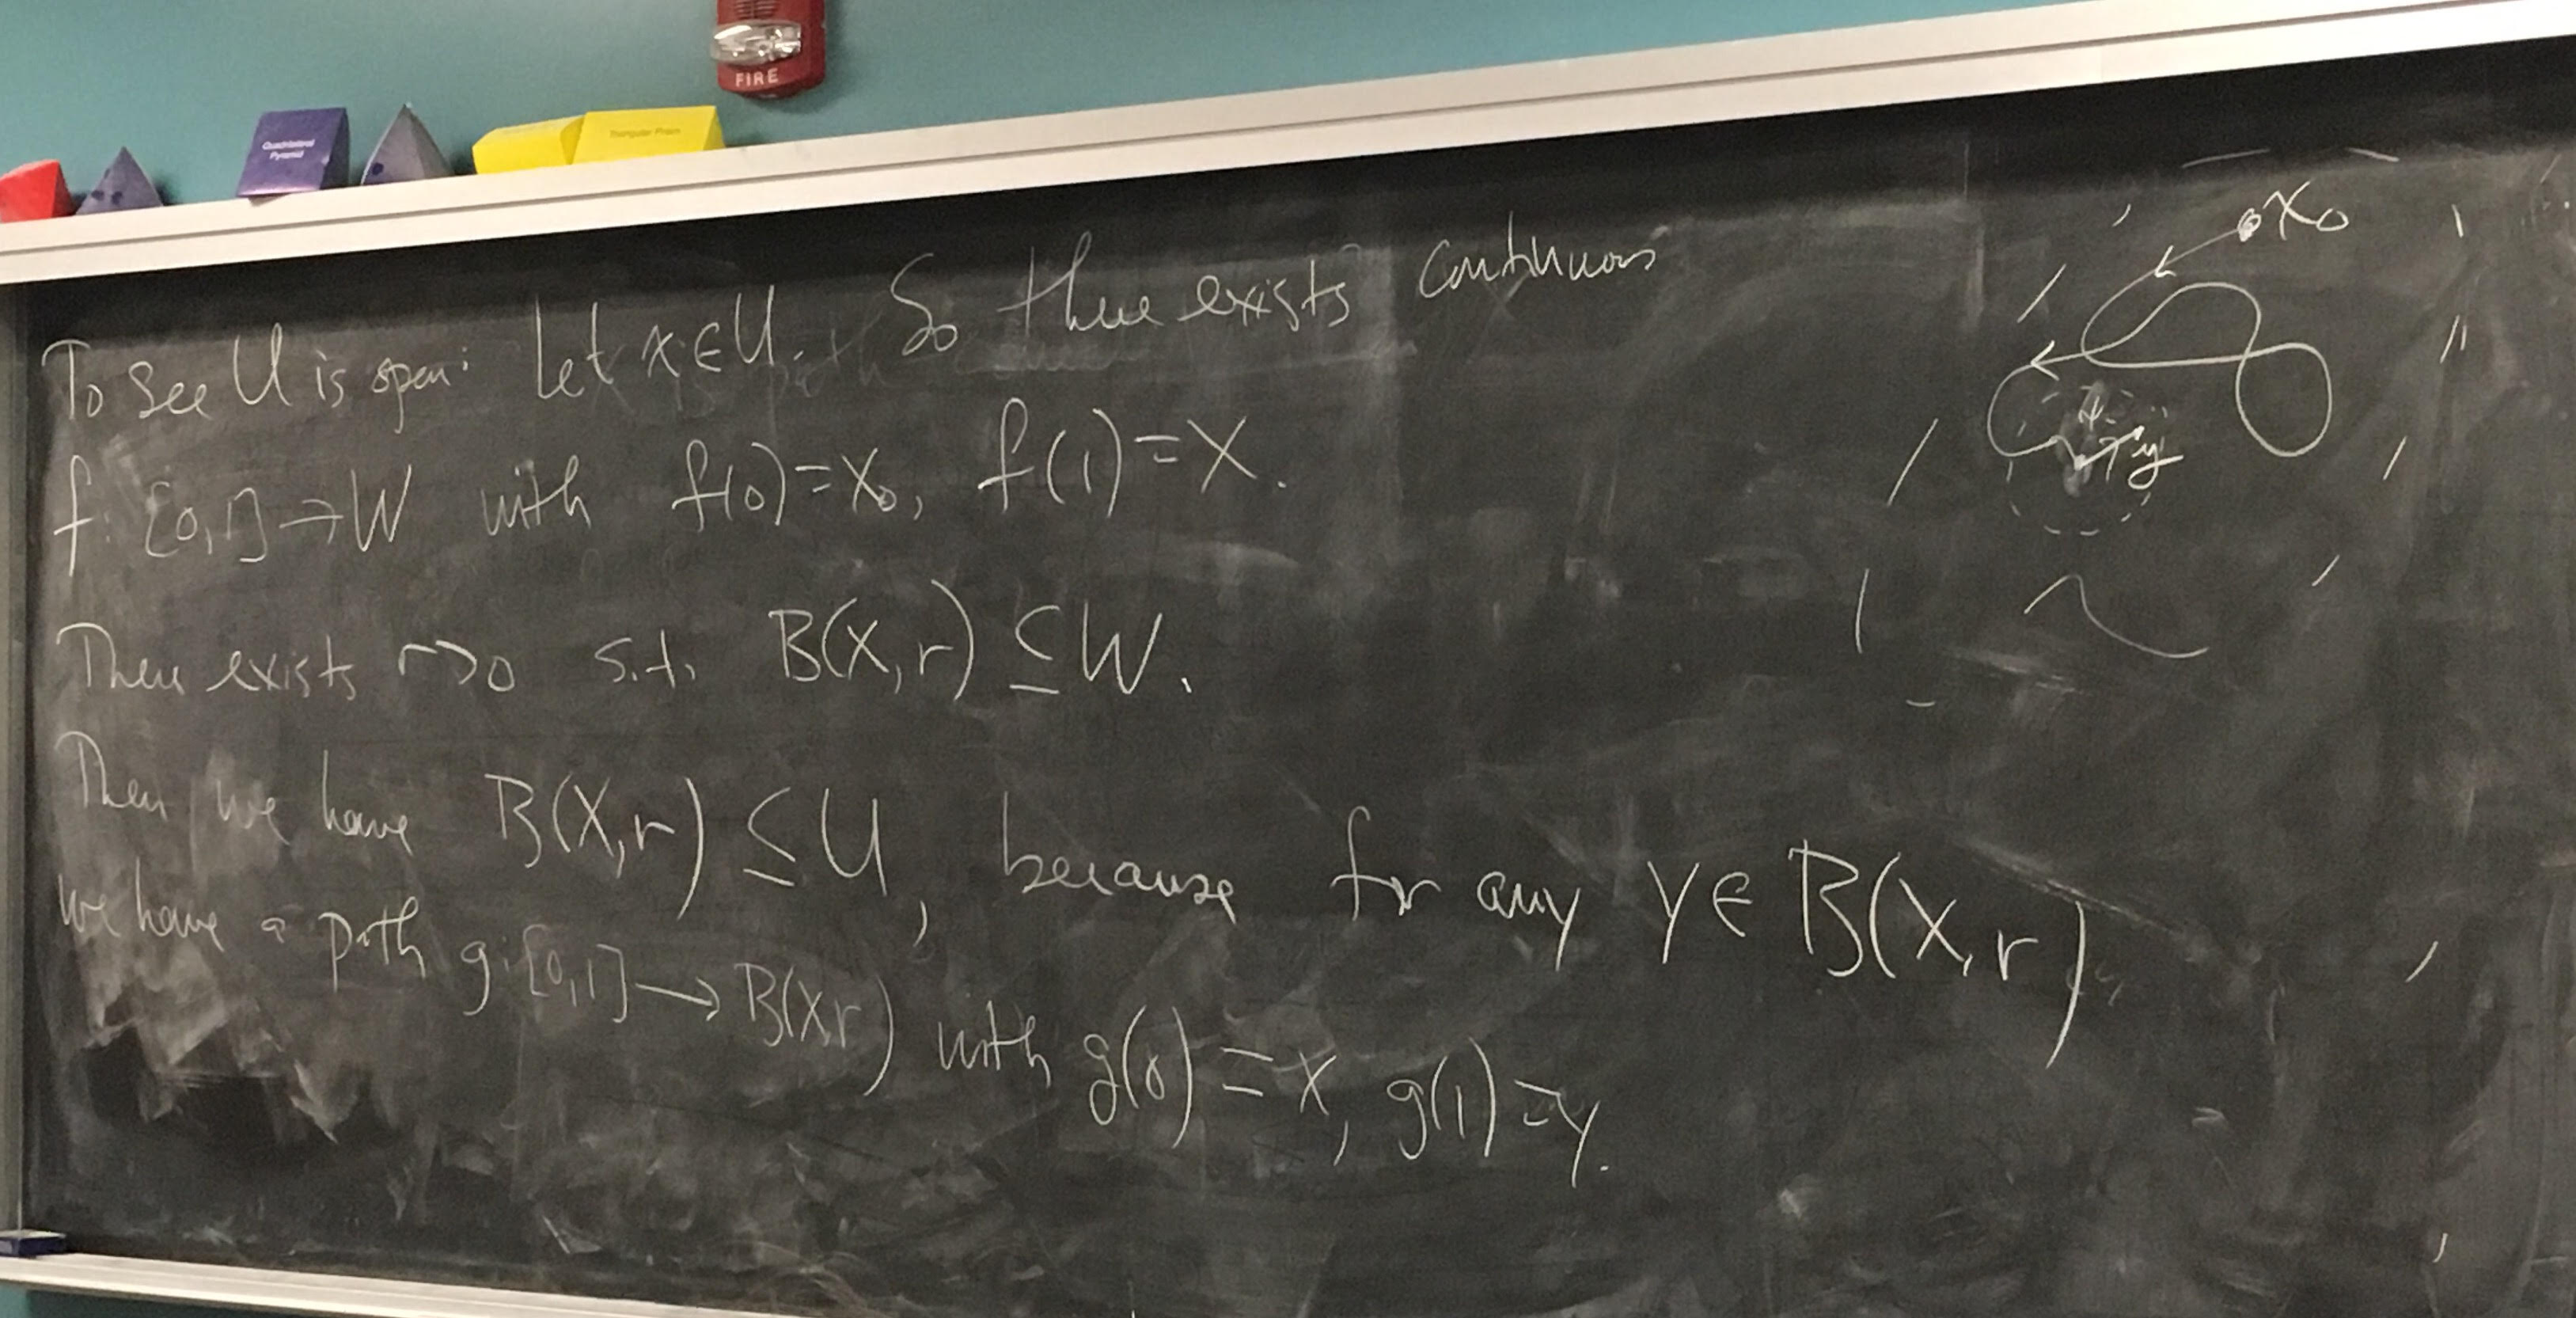 FIRE
Quadrilateral
Pyramid
Triangular Prism
To see U is open: Let x ∈ U. So there exists continuous
f: [0,1] → W with f(0)=x₀, f(1)=x.
There exists r>0 s.t. B(x,r) ⊆ W.
Then we have B(x,r) ⊆ U, because for any y ∈ B(x,r)
we have a path g:[0,1] → B(x,r) with g(0)=x, g(1)=y.
x₀
y